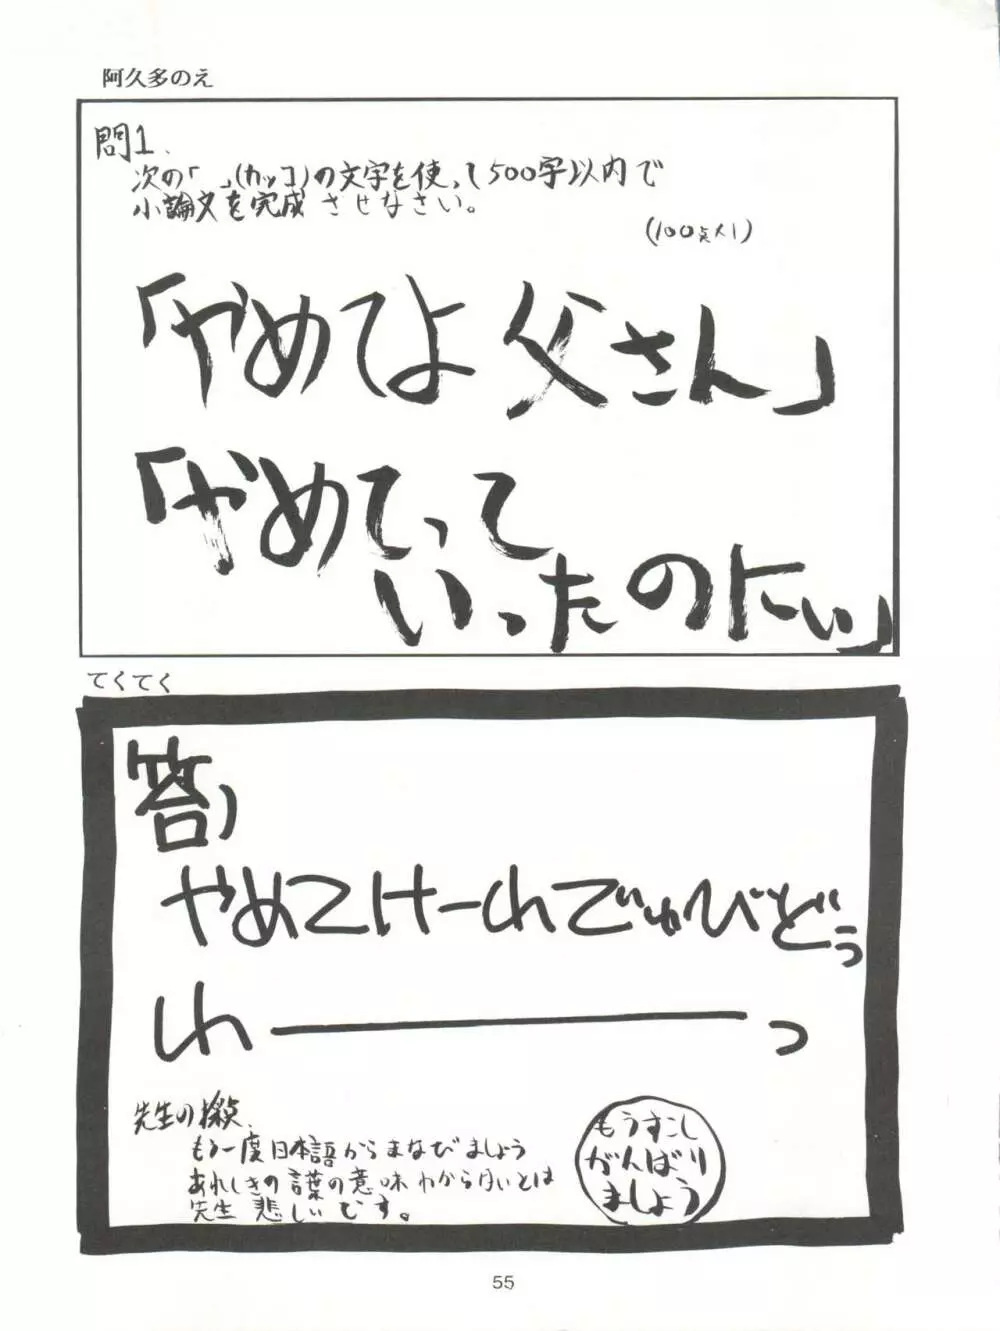 阿久多のえ
問1.
次の「　」(カッコ)の文字を使って500字以内で
小論文を完成させなさい。
(100点メ1)
「やめてよ父さん」
「やめてって
いったのにぃ」
てくてく
答)
やめてけーれでゅびどぅ
わ―――っ
先生の採点.
もう一度日本語からまなびましょう
あれしきの言葉の意味わからないとは
先生 悲しいです。
もうすこし
がんばり
ましょう
55